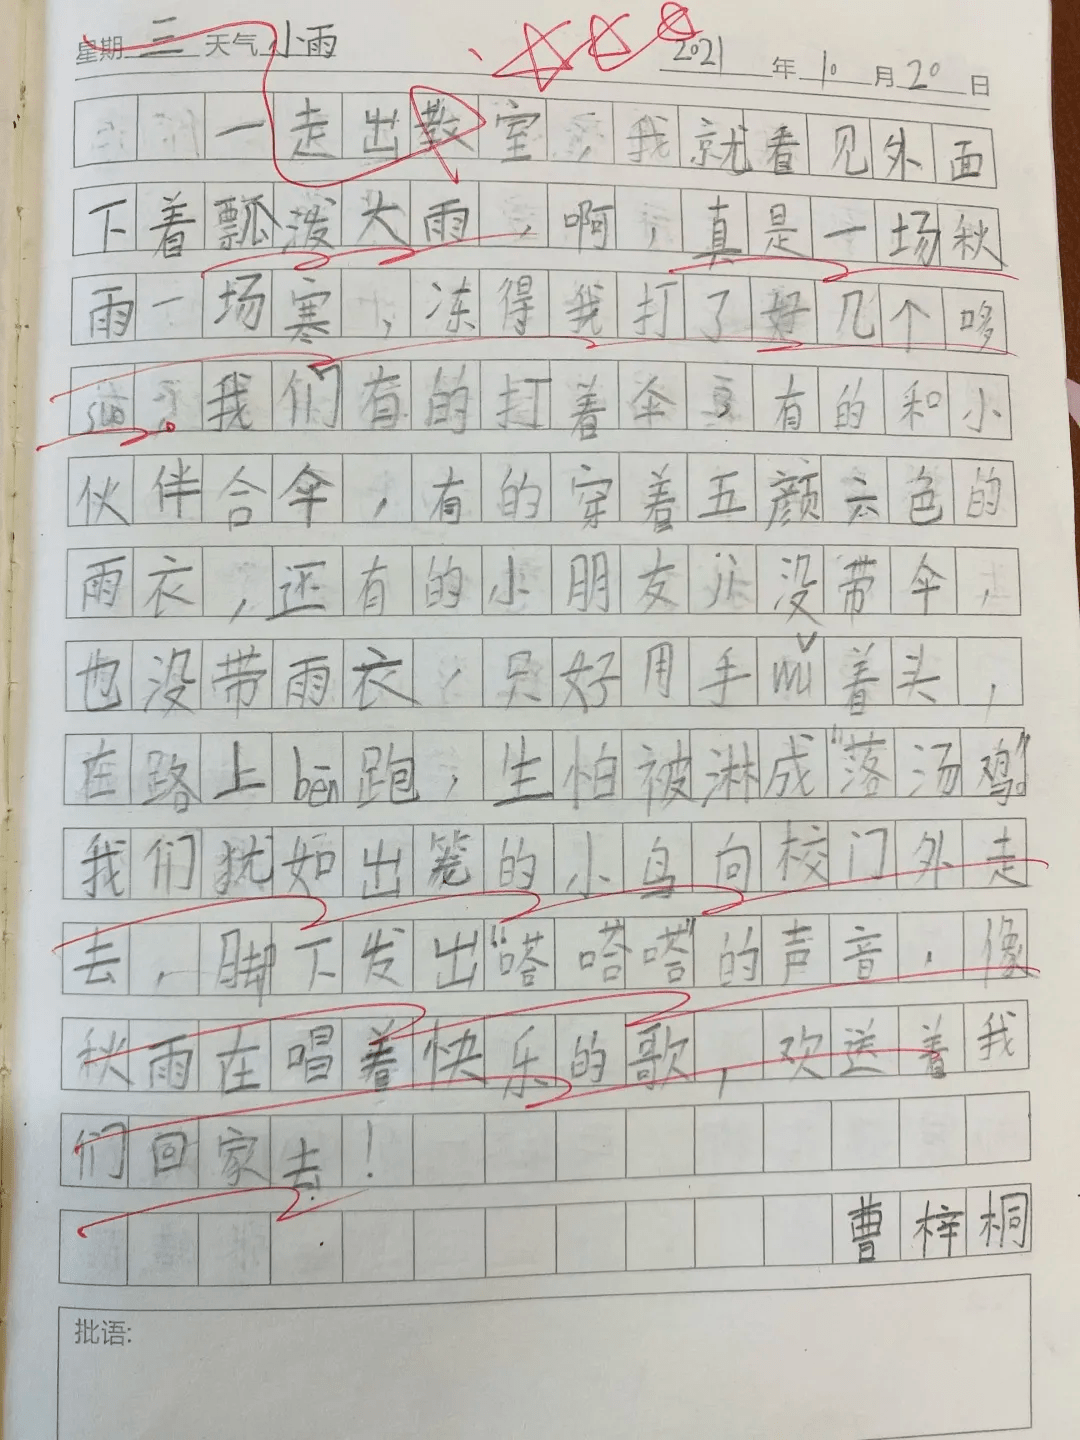 星期 三 天气 小雨 2021 年 10 月 20 日
一走出教室,我就看见外面
下着瓢泼大雨,啊,真是一场秋
雨一场寒,冻得我打了好几个哆
suo。我们有的打着伞,有的和小
伙伴合伞,有的穿着五颜六色的
雨衣,还有的小朋友儿没带伞,
也没带雨衣,只好用手wǔ着头,
在路上bēn跑,生怕被淋成“落汤鸡”。
我们犹如出笼的小鸟向校门外走
去,脚下发出“嗒嗒嗒”的声音,像
秋雨在唱着快乐的歌,欢送着我
们回家去!
曹梓桐
批语: